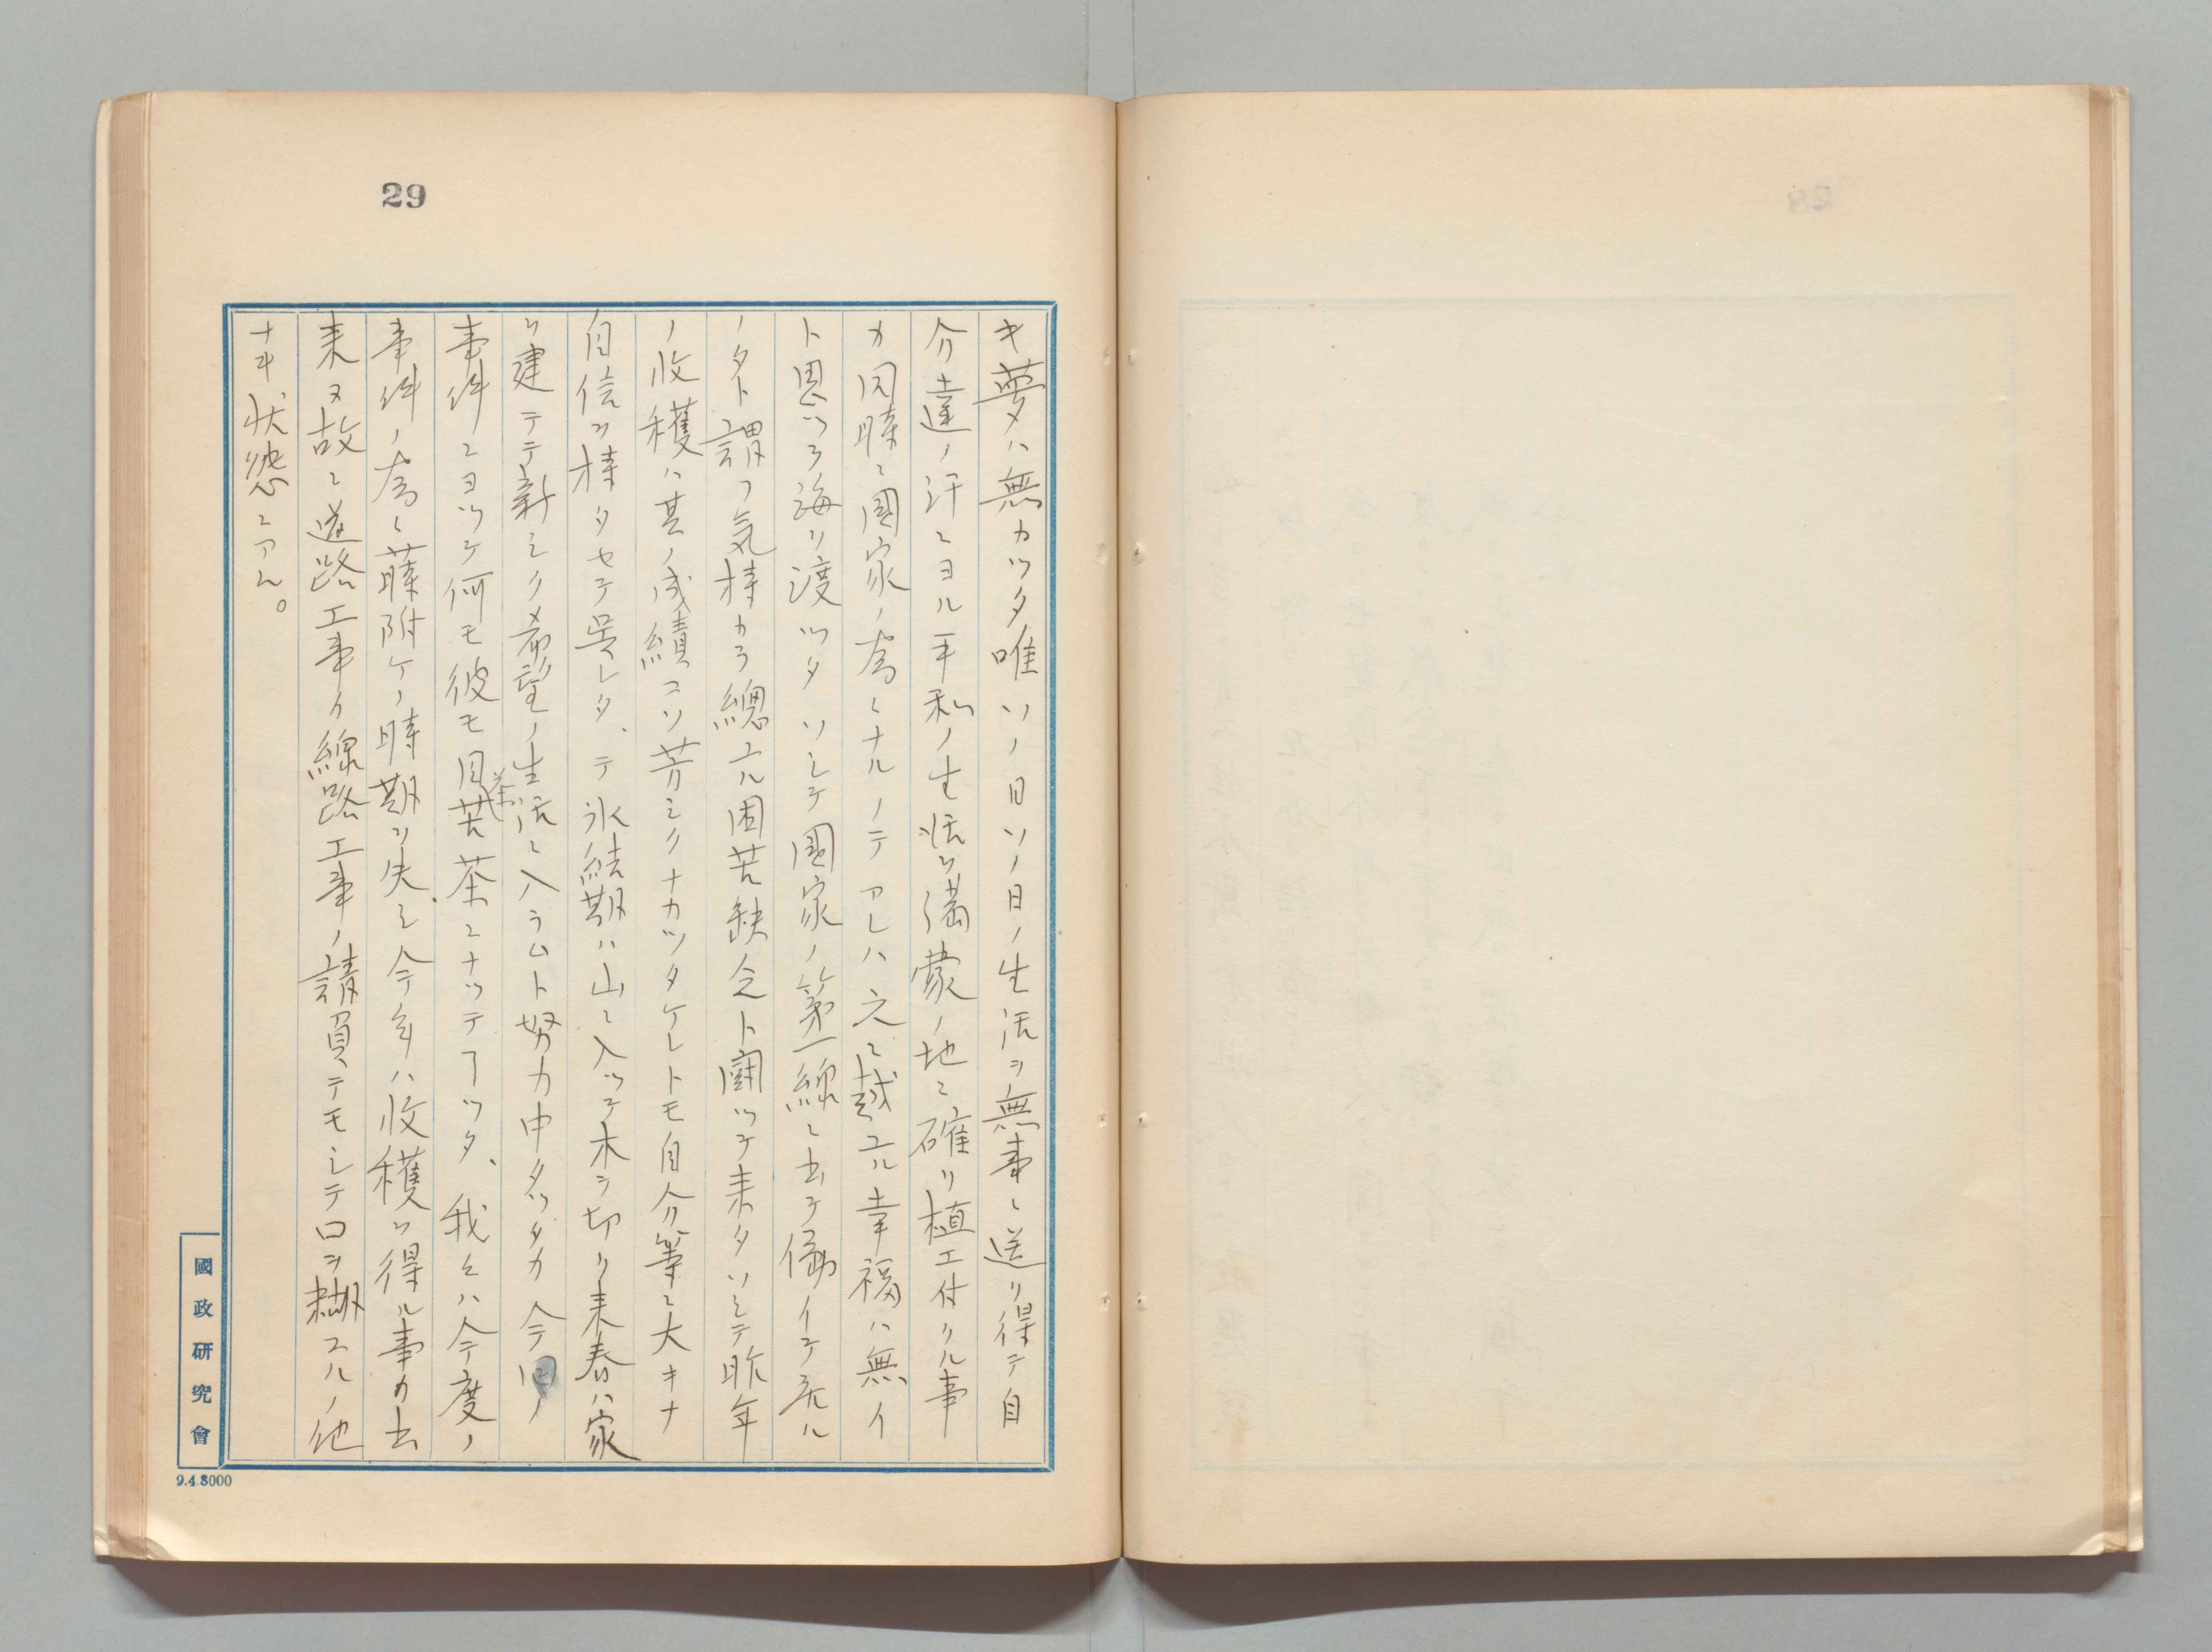 29
キ夢ハ無カツタ唯ソノ日ソノ日ノ生活ヲ無事ニ送リ得テ自
分達ノ汗ニヨル平和ノ生活ヲ満蒙ノ地ニ確リ植エ付クル事
カ同時ニ國家ノ為ニナルノテアレハ之ニ越エル幸福ハ無イ
ト思ツテ海ヲ渡ツタソシテ國家ノ第一線ニ出テ働イテ居ル
ノタト謂フ気持カラ總ユル困苦缺乏ト闘ツテ来タソシテ昨年
ノ收穫ハ其ノ成績コソ芳シクナカツタケレトモ自分等ニ大キナ
自信ヲ持タセテ呉レタ、テ氷結期ハ山ニ入ツテ木ヲ切リ来春ハ家
ヲ建テテ新シク希望ノ生活ニ入ラムト努力中タツタカ今回ノ
事件ニヨツテ何モ彼モ目茶苦茶ニナツテ了ツタ、我々ハ今度ノ
事件ノ為ニ蒔附ケノ時期ヲ失シ今年ハ收穫ヲ得ル事カ出
来ヌ故ニ道路工事カ線路工事ノ請負テモシテ口ヲ糊スルノ他
ナキ状態ニアル。
國政研究會
9.4.8000